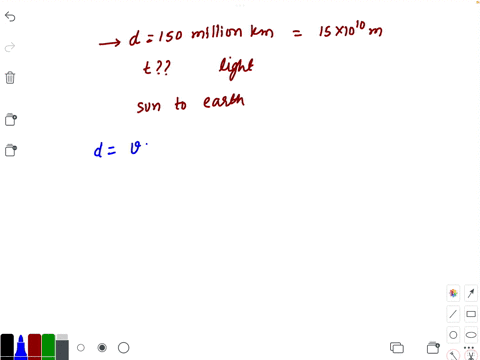 → d = 150 million km = 15×10¹⁰ m
t?? light
sun to earth
d = v.